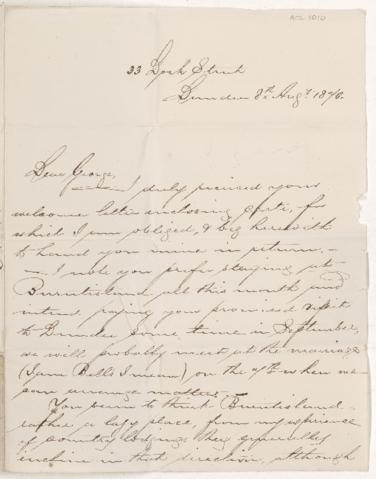 ACC 1010
33 Dock Street
Dundee 8th Augt 1870.
Dear George,
I duly received your
welcome letter enclosing carte, for
which I am obliged, & beg herewith
to hand you mine in return. —
— I note you prefer staying at
Burntisland all this month and
intend paying your promised visit
to Dundee some time in September,
we will probably meet at the marriage
(Jane Bells I mean) on the when we
can arrange matters. —
You seem to think Burntisland
rather a lazy place, from my experience
of country lodgings they generally
incline in that direction, although